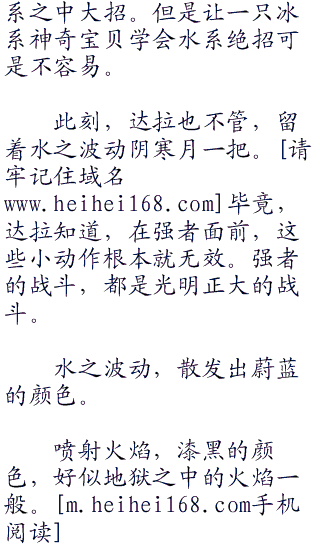 系之中大招。但是让一只冰
系神奇宝贝学会水系绝招可
是不容易。
此刻，达拉也不管，留
着水之波动阴寒月一把。[请
牢记住域名
www.heihei168.com]毕竟，
达拉知道，在强者面前，这
些小动作根本就无效。强者
的战斗，都是光明正大的战
斗。
水之波动，散发出蔚蓝
的颜色。
喷射火焰，漆黑的颜
色，好似地狱之中的火焰一
般。[m.heihei168.com手机
阅读]